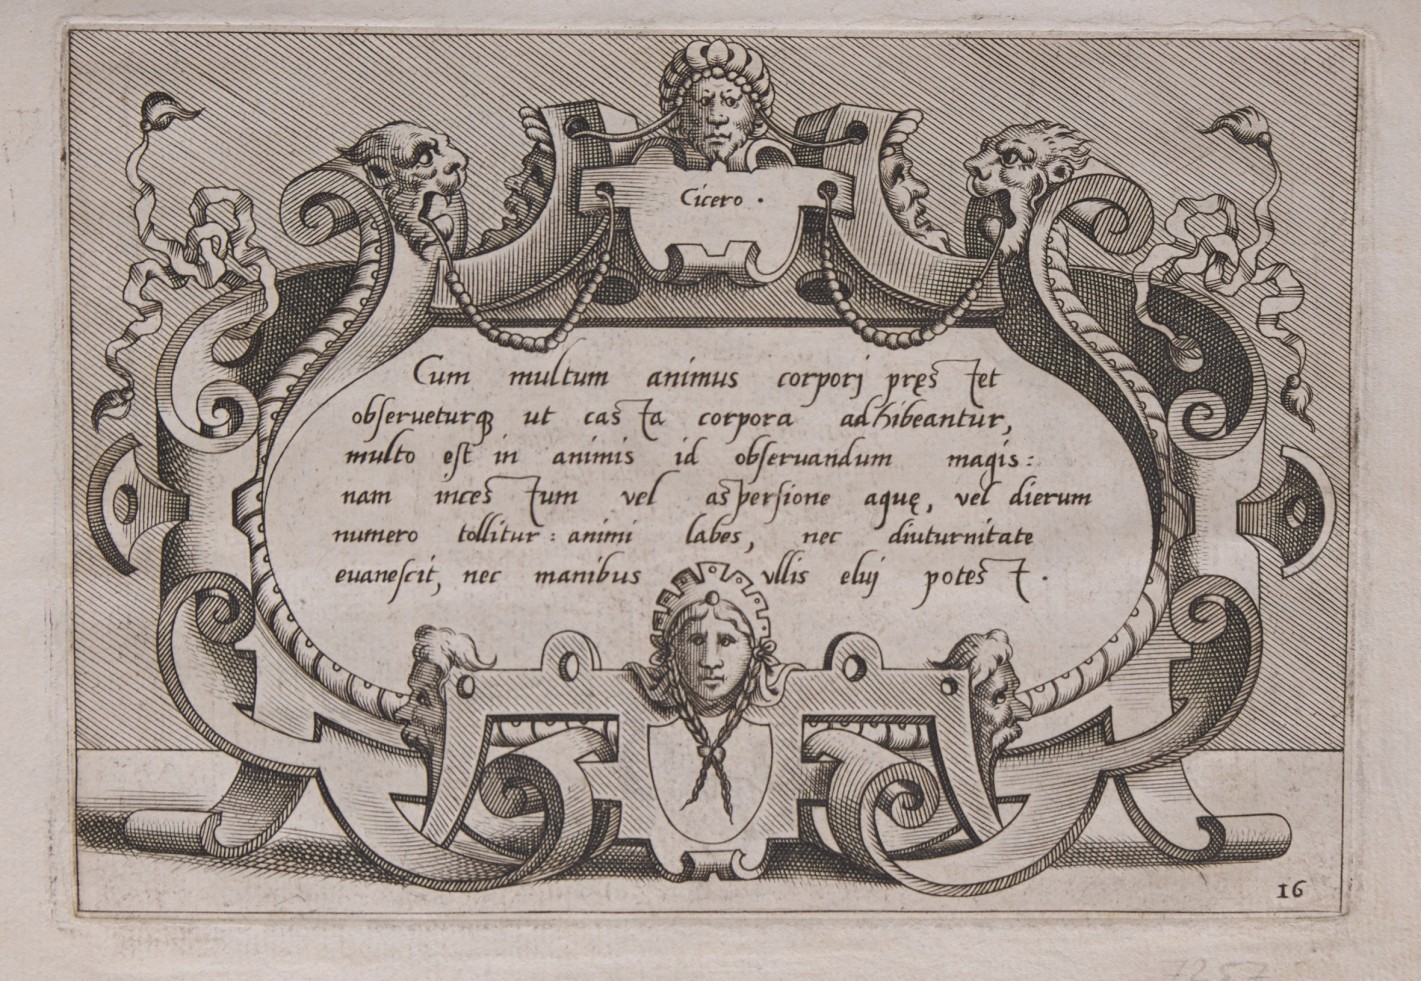 Cicero.
Cum multum animus corporj pręstet
obserueturq́ue ut casta corpora adhibeantur,
multo est in animis id obseruandum magis:
nam incestum vel aspersione aquę, vel dierum
numero tollitur: animi labes, nec diuturnitate
euanescit, nec manibus vllis eluj potest.
16
7257